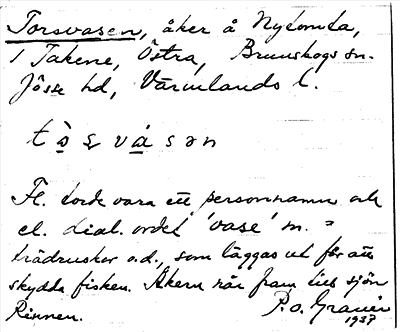 Torsvasen, åker å Nytomta,
i Takene, Östra, Brunskogs sn.
Jösse hd, Värmlands l.
t ò̱ s̱ v á̱ s ə n
Fl. torde vara ett personnamn och
el. dial. ordet 'vase' m. =
trädruskor o.d., som läggas ut för att
skydda fisken. Åkern når fram till sjön
Rinnen. P.O. Graner
1937